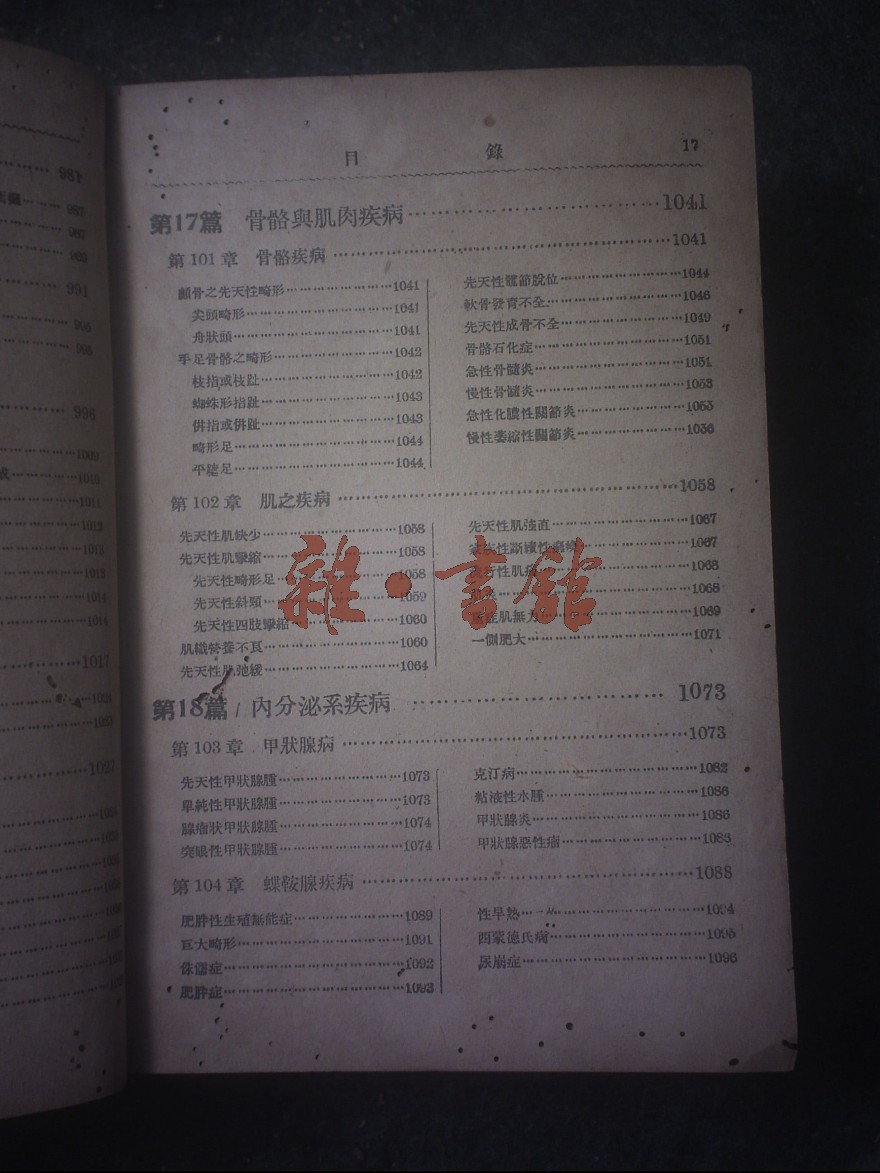 目 錄 17
第17篇 骨骼與肌肉疾病 1041
第101章 骨骼疾病 1041
顱骨之先天性畸形 1041
尖頭畸形 1041
舟狀頭 1041
手足骨骼之畸形 1042
枝指或枝趾 1042
蜘蛛形指趾 1043
併指或併趾 1043
畸形足 1044
平蹠足 1044
先天性髖節脫位 1044
軟骨發育不全 1046
先天性成骨不全 1049
骨骼石化症 1051
急性骨髓炎 1051
慢性骨髓炎 1053
急性化膿性關節炎 1055
慢性萎縮性關節炎 1056
第102章 肌之疾病 1058
先天性肌缺少 1058
先天性肌攣縮 1058
先天性畸形足 1058
先天性斜頸 1059
先天性四肢攣縮 1060
肌織營養不良 1060
先天性肌弛緩 1064
先天性肌強直 1067
1067
性肌 1068
1068
肌無力 1069
一側肥大 1071
雜·書館
第18篇 內分泌系疾病 1073
第103章 甲狀腺病 1073
先天性甲狀腺腫 1073
單純性甲狀腺腫 1073
腺瘤狀甲狀腺腫 1074
突眼性甲狀腺腫 1074
克汀病 1082
粘液性水腫 1086
甲狀腺炎 1086
甲狀腺惡性瘤 1088
第104章 蝶鞍腺疾病 1088
肥胖性生殖無能症 1089
巨大畸形 1091
侏儒症 1092
肥胖症 1093
性早熟 1094
西蒙德氏病 1095
尿崩症 1096
981
987
987
989
991
995
996
996
1009
1010
1011
1012
1013
1013
1014
1014
1017
1023
1025
1027